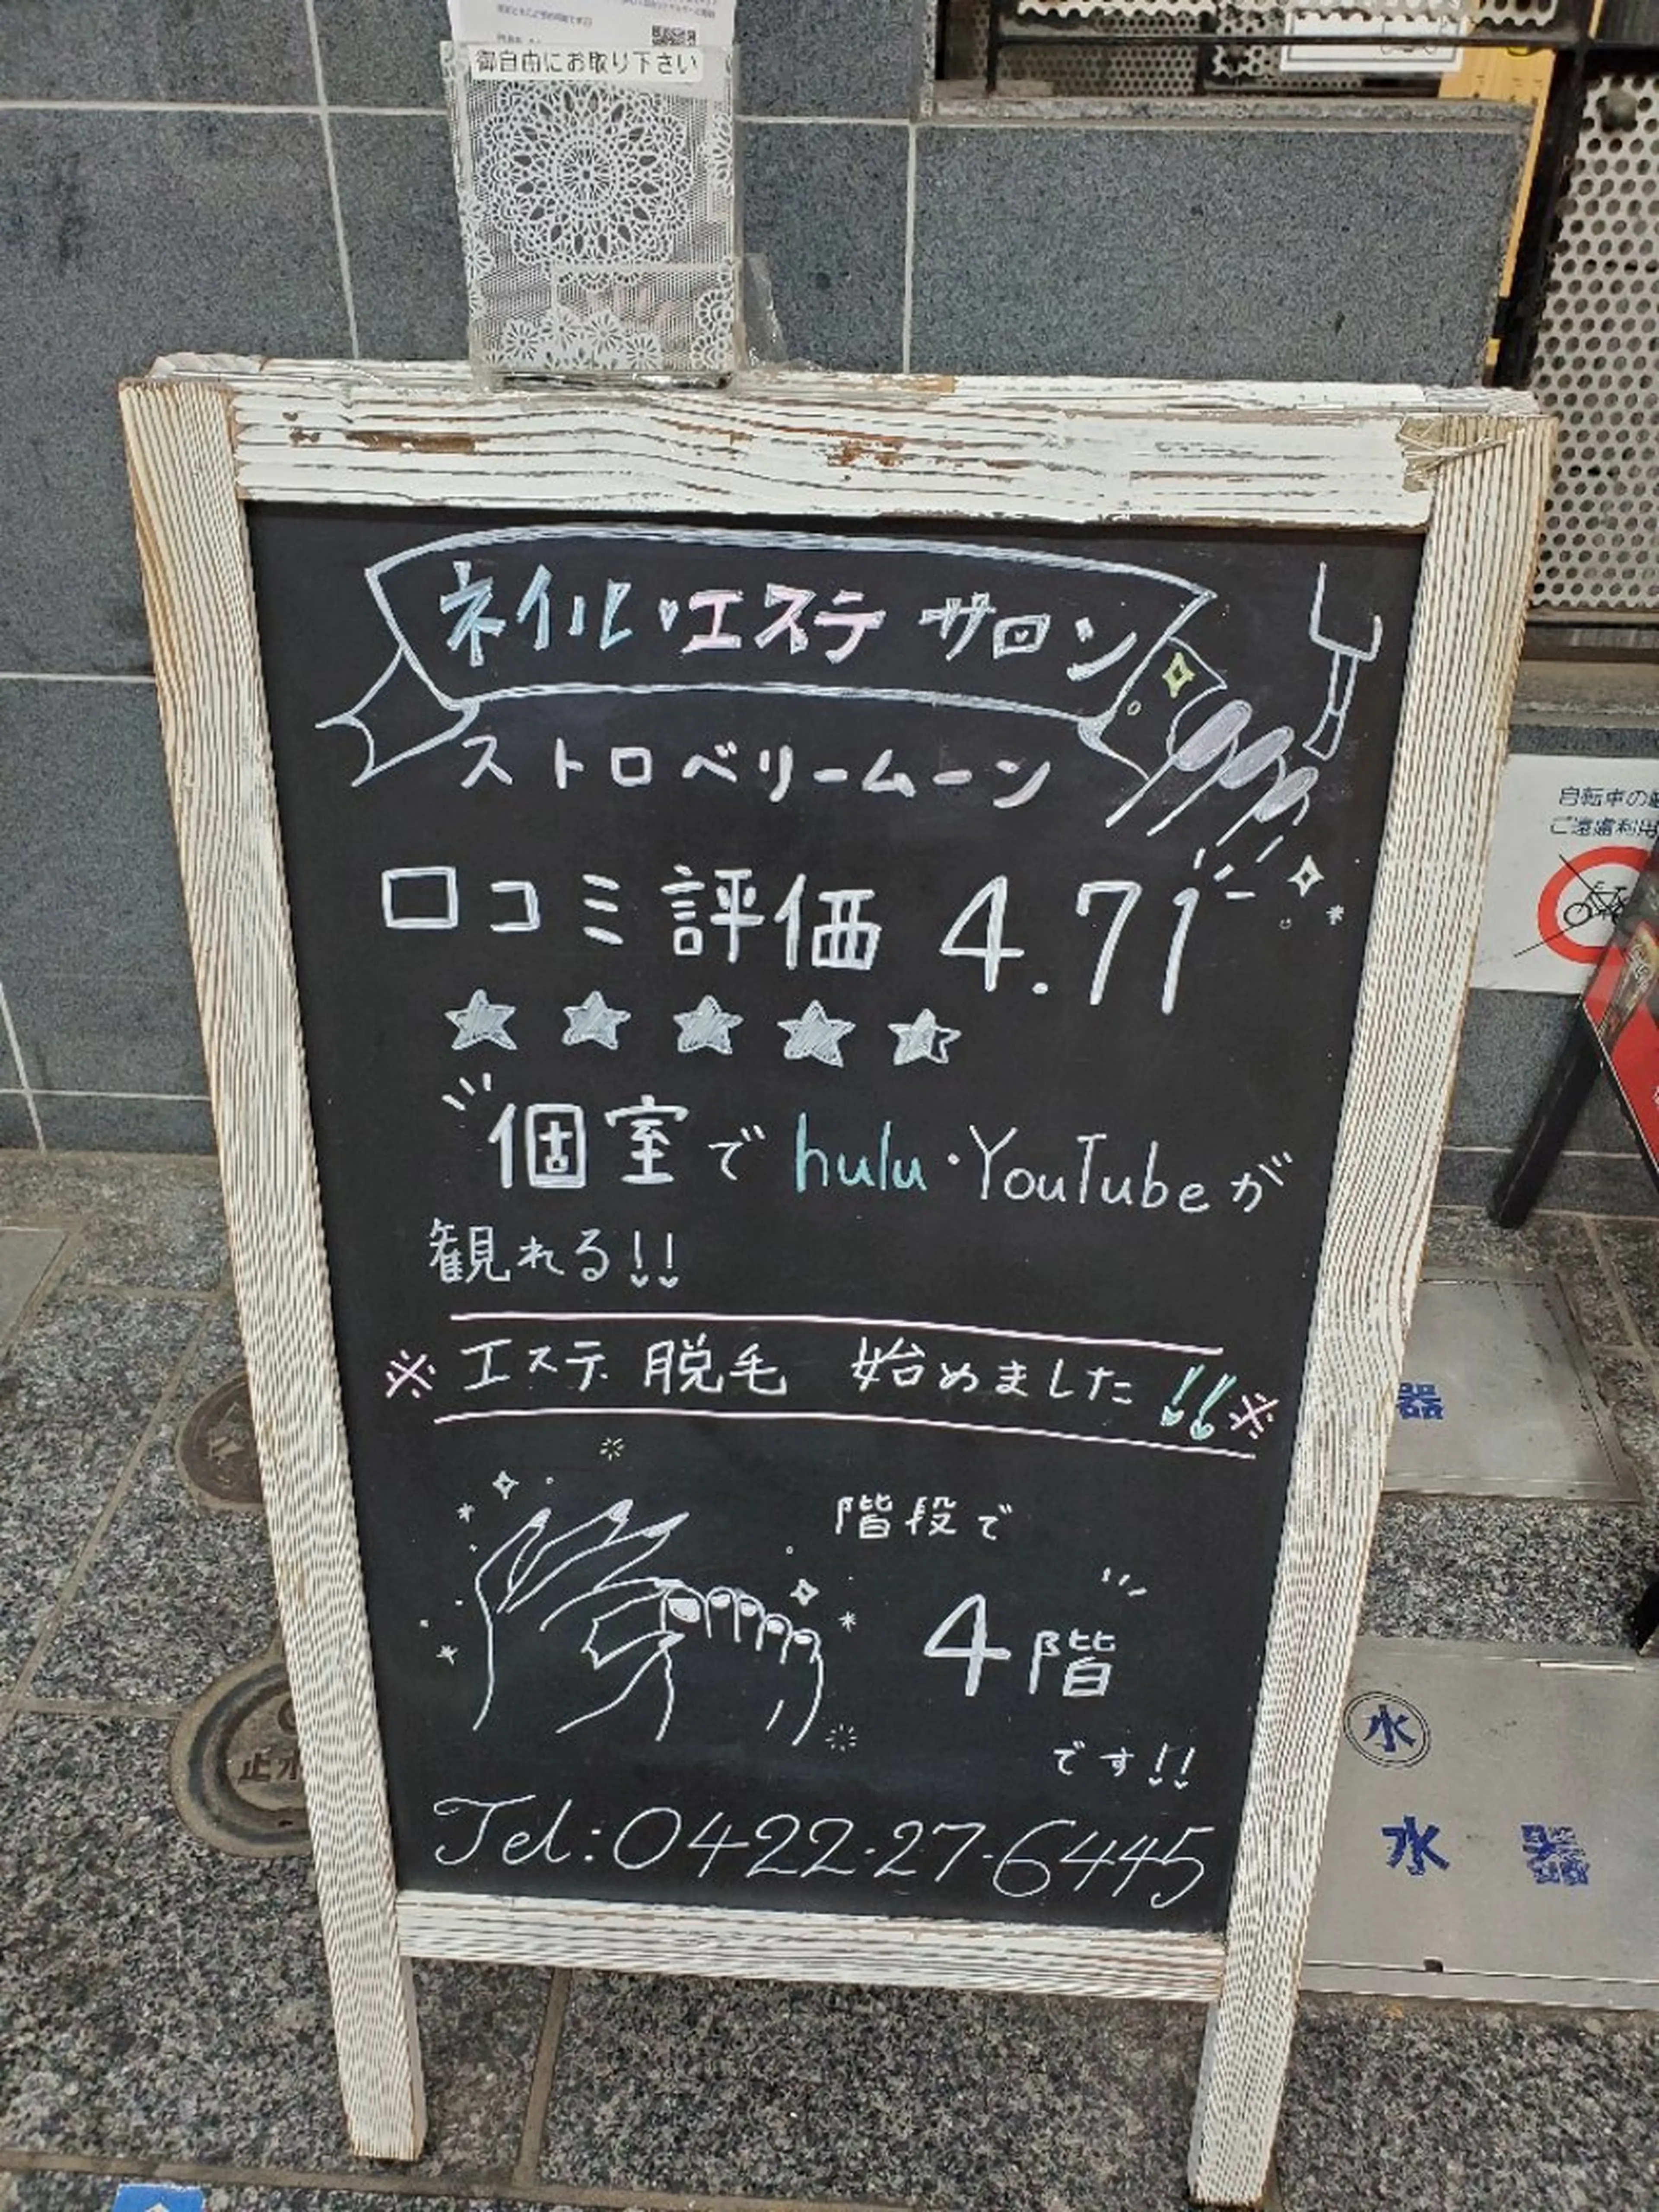 御自由にお取り下さい
ネイル♥エステ サロン
ストロベリームーン
口コミ評価 4.71
★★★★★
個室でhulu・YouTubeが
観れる!!
※エステ脱毛 始めました!!※
階段で
4階
です!!
Tel:0422-27-6445
自転車の
ご遠慮
器
水
水
止水